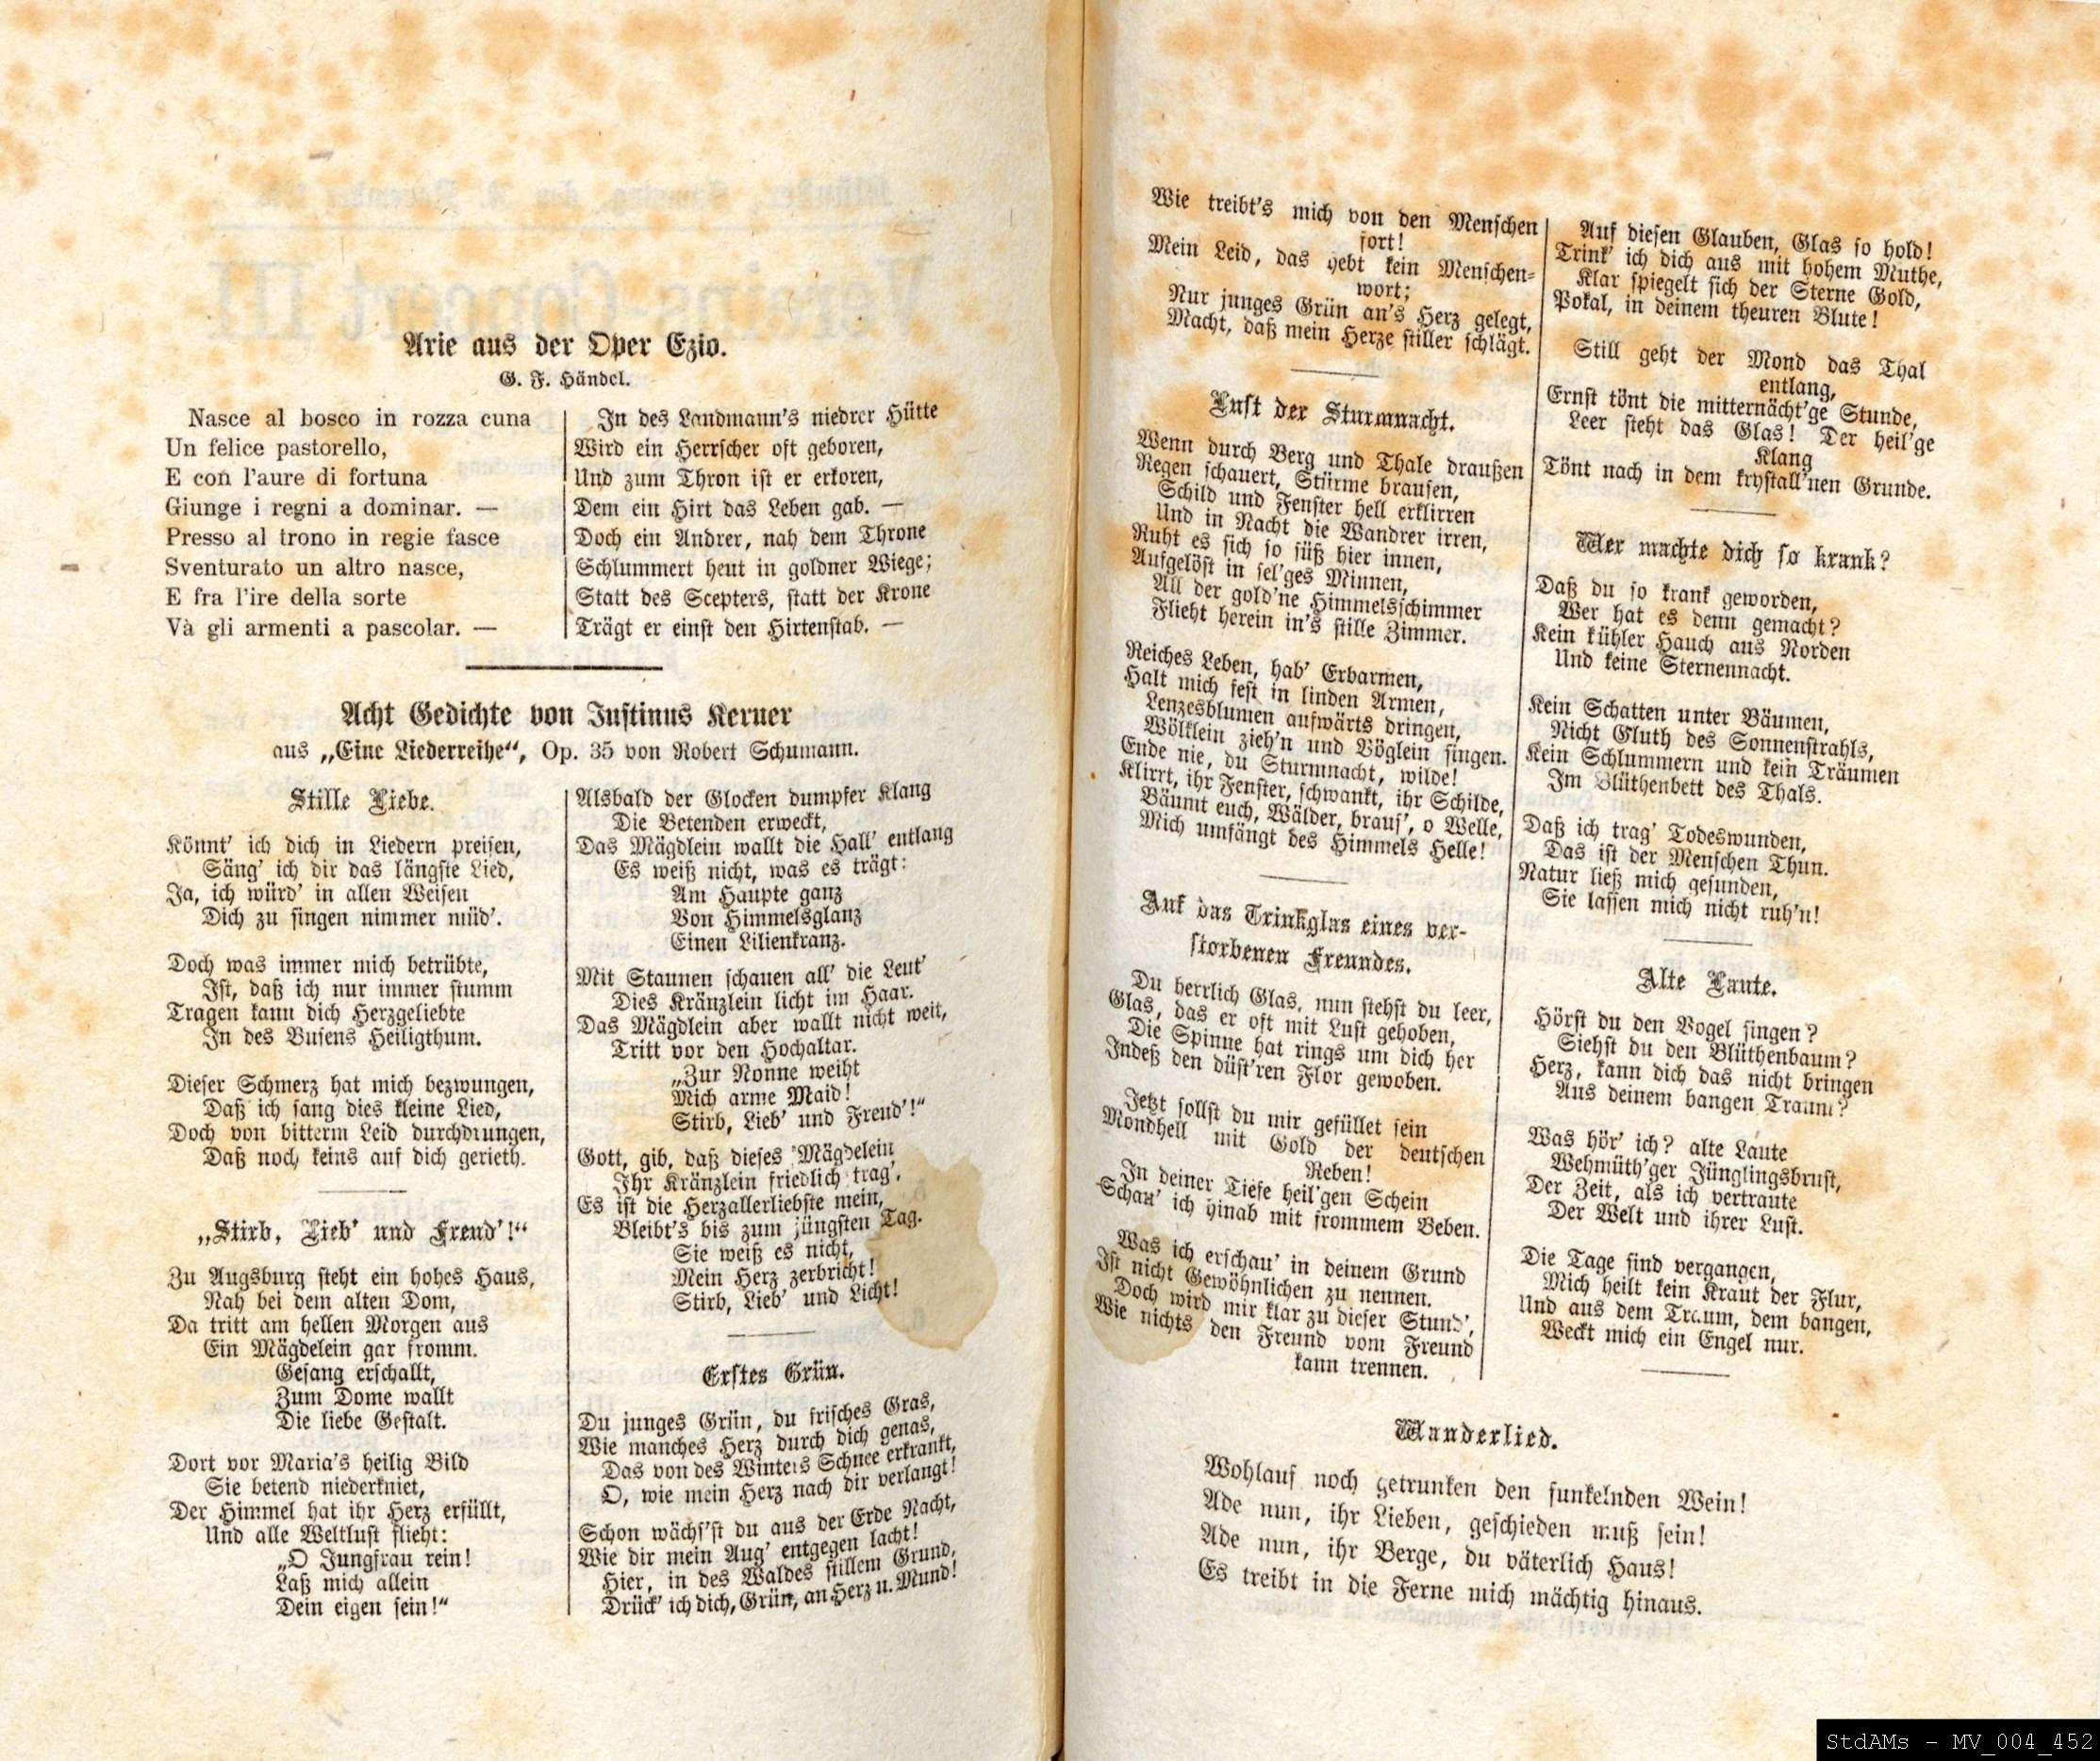 Arie aus der Oper Ezio.
G. F. Händel.
Nasce al bosco in rozza cuna
Un felice pastorello,
E con l'aure di fortuna
Giunge i regni a dominar. —
Presso al trono in regie fasce
Sventurato un altro nasce,
E fra l'ire della sorte
Và gli armenti a pascolar. —
In des Landmann's niedrer Hütte
Wird ein Herrscher oft geboren,
Und zum Thron ist er erkoren,
Dem ein Hirt das Leben gab. —
Doch ein Andrer, nah dem Throne
Schlummert heut in goldner Wiege;
Statt des Scepters, statt der Krone
Trägt er einst den Hirtenstab. —
Acht Gedichte von Justinus Kerner
aus „Eine Liederreihe“, Op. 35 von Robert Schumann.
Stille Liebe.
Könnt' ich dich in Liedern preisen,
Säng' ich dir das längste Lied,
Ja, ich würd' in allen Weisen
Dich zu singen nimmer müd'.
Doch was immer mich betrübte,
Ist, daß ich nur immer stumm
Tragen kann dich Herzgeliebte
In des Busens Heiligthum.
Dieser Schmerz hat mich bezwungen,
Daß ich sang dies kleine Lied,
Doch von bitterm Leid durchdrungen,
Daß noch keins auf dich gerieth.
„Stirb, Lieb' und Freud'!“
Zu Augsburg steht ein hohes Haus,
Nah bei dem alten Dom,
Da tritt am hellen Morgen aus
Ein Mägdelein gar fromm.
Gesang erschallt,
Zum Dome wallt
Die liebe Gestalt.
Dort vor Maria's heilig Bild
Sie betend niederkniet,
Der Himmel hat ihr Herz erfüllt,
Und alle Weltlust flieht:
„O Jungfrau rein!
Laß mich allein
Dein eigen sein!“
Alsbald der Glocken dumpfer Klang
Die Betenden erweckt,
Das Mägdlein wallt die Hall' entlang
Es weiß nicht, was es trägt:
Am Haupte ganz
Von Himmelsglanz
Einen Lilienkranz.
Mit Staunen schauen all' die Leut'
Dies Kränzlein licht im Haar.
Das Mägdlein aber wallt nicht weit,
Tritt vor den Hochaltar.
„Zur Nonne weiht
Mich arme Maid!
Stirb, Lieb' und Freud'!“
Gott, gib, daß dieses Mägdelein
Ihr Kränzlein friedlich trag',
Es ist die Herzallerliebste mein,
Bleibt's bis zum jüngsten Tag.
Sie weiß es nicht,
Mein Herz zerbricht!
Stirb, Lieb' und Licht!
Erstes Grün.
Du junges Grün, du frisches Gras,
Wie manches Herz durch dich genas,
Das von des Winters Schnee erkrankt,
O, wie mein Herz nach dir verlangt!
Schon wächs'st du aus der Erde Nacht,
Wie dir mein Aug' entgegen lacht!
Hier, in des Waldes stillem Grund,
Drück' ich dich, Grün, an Herz u. Mund!
Wie treibt's mich von den Menschen
fort!
Mein Leid, das hebt kein Menschen-
wort;
Nur junges Grün an's Herz gelegt,
Macht, daß mein Herze stiller schlägt.
Lust der Sturmnacht.
Wenn durch Berg und Thale draußen
Regen schauert, Stürme brausen,
Schild und Fenster hell erklirren
Und in Nacht die Wandrer irren,
Ruht es sich so süß hier innen,
Aufgelöst in sel'ges Minnen,
All der gold'ne Himmelsschimmer
Flieht herein in's stille Zimmer.
Reiches Leben, hab' Erbarmen,
Halt mich fest in linden Armen,
Lenzesblumen aufwärts dringen,
Wölklein zieh'n und Vöglein singen.
Ende nie, du Sturmnacht, wilde!
Klirrt, ihr Fenster, schwankt, ihr Schilde,
Bäumt euch, Wälder, braus', o Welle,
Mich umfängt des Himmels Helle!
Auf das Trinkglas eines ver-
storbenen Freundes.
Du herrlich Glas, nun stehst du leer,
Glas, das er oft mit Lust gehoben,
Die Spinne hat rings um dich her
Indeß den düst'ren Flor gewoben.
Jetzt sollst du mir gefüllet sein
Mondhell mit Gold der deutschen
Reben!
In deiner Tiefe heil'gen Schein
Schau' ich hinab mit frommem Beben.
Was ich erschau' in deinem Grund
Ist nicht Gewöhnlichen zu nennen.
Doch wird mir klar zu dieser Stund',
Wie nichts den Freund vom Freund
kann trennen.
Auf diesen Glauben, Glas so hold!
Trink' ich dich aus mit hohem Muthe,
Klar spiegelt sich der Sterne Gold,
Pokal, in deinem theuren Blute!
Still geht der Mond das Thal
entlang,
Ernst tönt die mitternächt'ge Stunde,
Leer steht das Glas! Der heil'ge
Klang
Tönt nach in dem krystall'nen Grunde.
Wer machte dich so krank?
Daß du so krank geworden,
Wer hat es denn gemacht?
Kein kühler Hauch aus Norden
Und keine Sternennacht.
Kein Schatten unter Bäumen,
Nicht Gluth des Sonnenstrahls,
Kein Schlummern und kein Träumen
Im Blüthenbett des Thals.
Daß ich trag' Todeswunden,
Das ist der Menschen Thun.
Natur ließ mich gesunden,
Sie lassen mich nicht ruh'n!
Alte Laute.
Hörst du den Vogel singen?
Siehst du den Blüthenbaum?
Herz, kann dich das nicht bringen
Aus deinem bangen Traum?
Was hör' ich? alte Laute
Wehmüth'ger Jünglingsbrust,
Der Zeit, als ich vertraute
Der Welt und ihrer Lust.
Die Tage sind vergangen,
Mich heilt kein Kraut der Flur,
Und aus dem Traum, dem bangen,
Weckt mich ein Engel nur.
Wanderlied.
Wohlauf noch getrunken den funkelnden Wein!
Ade nun, ihr Lieben, geschieden muß sein!
Ade nun, ihr Berge, du väterlich Haus!
Es treibt in die Ferne mich mächtig hinaus.
StdAMs - MV_004_452